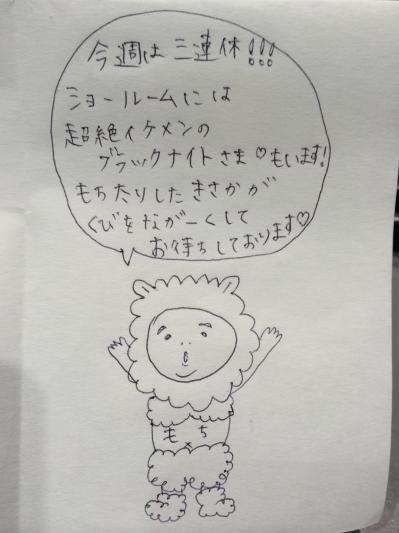 今週は三連休!!!
ショールームには
超絶イケメンの
ブラックナイトさま♡もいます!
もちたりしたきさかが
くびをながーくして
お待ちしております♡
もち